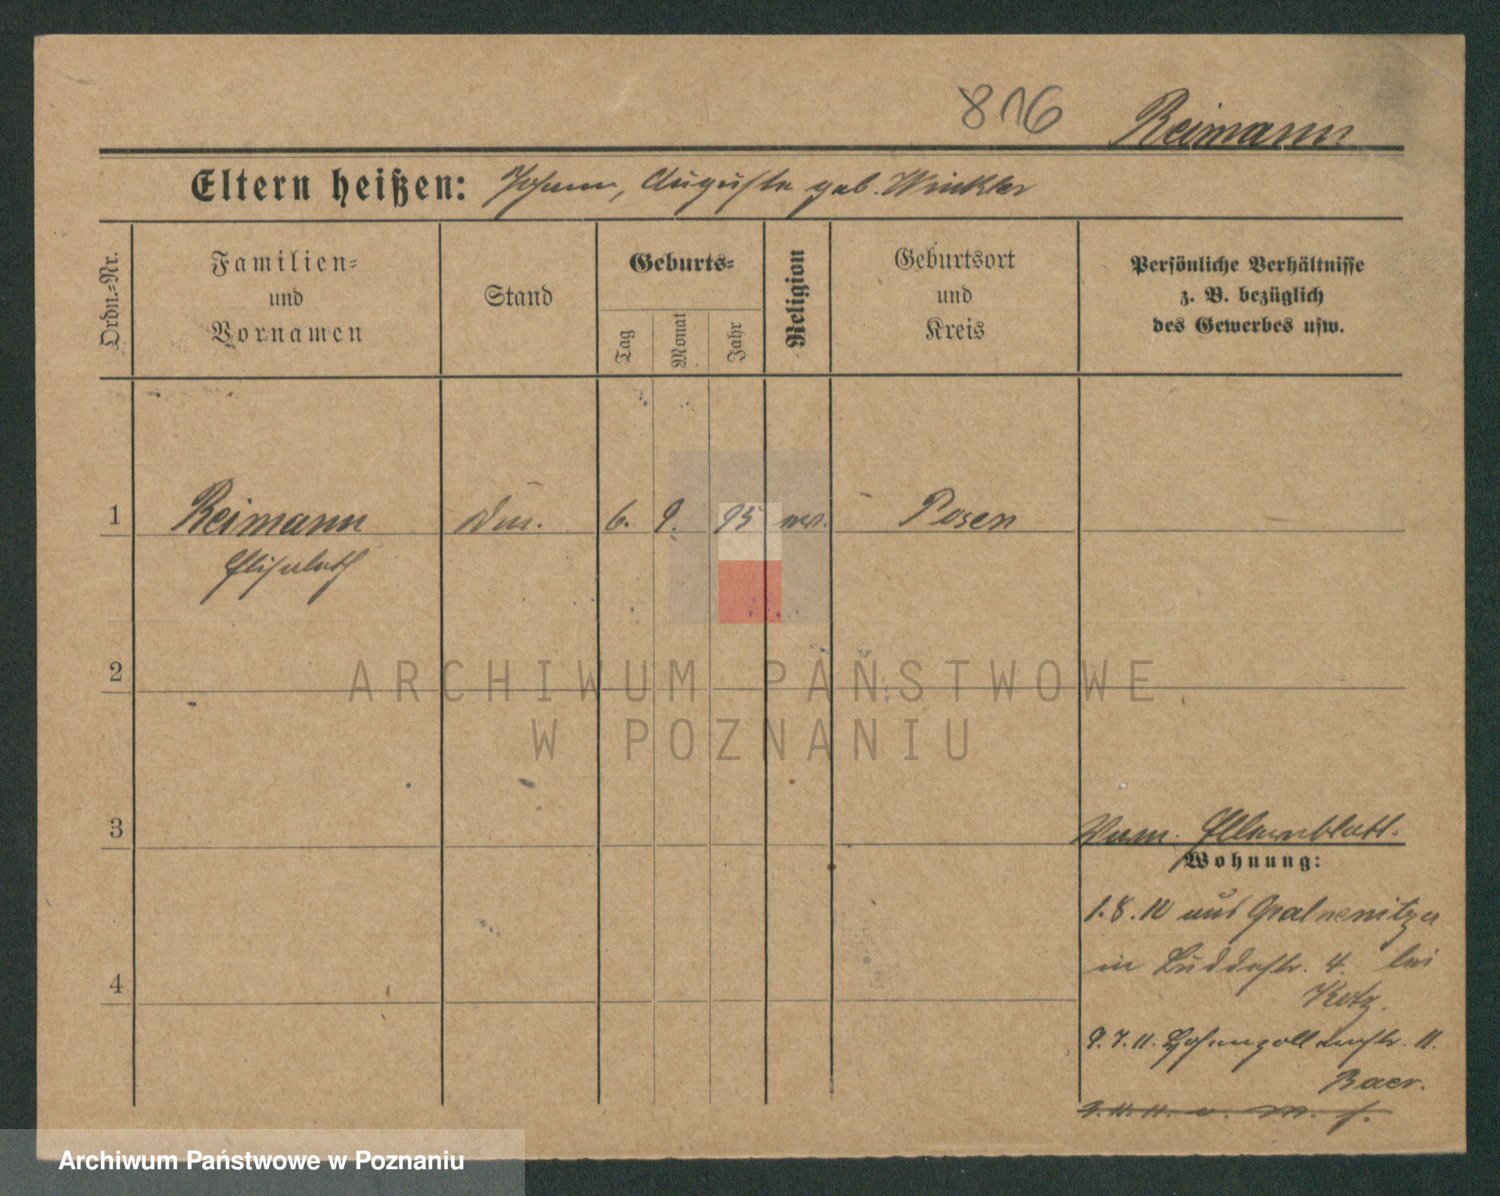 816 Reimann
Eltern heißen: Johann, Auguste geb. Winkler
Ordn.=Nr.
Familien=
und
Vornamen
Stand
Geburts=
Tag
Monat
Jahr
Religion
Geburtsort
und
Kreis
Persönliche Verhältnisse
z. B. bezüglich
des Gewerbes usw.
1 Reimann 6. 9. 95 Posen
Elisabeth
2
ARCHIWUM PAŃSTWOWE
W POZNANIU
3
Elternblatt.
Wohnung:
1.8.10 aus
in 4. bei
9.7.11. Hohenzollernstr. 11.
Baer.
4
Archiwum Państwowe w Poznaniu